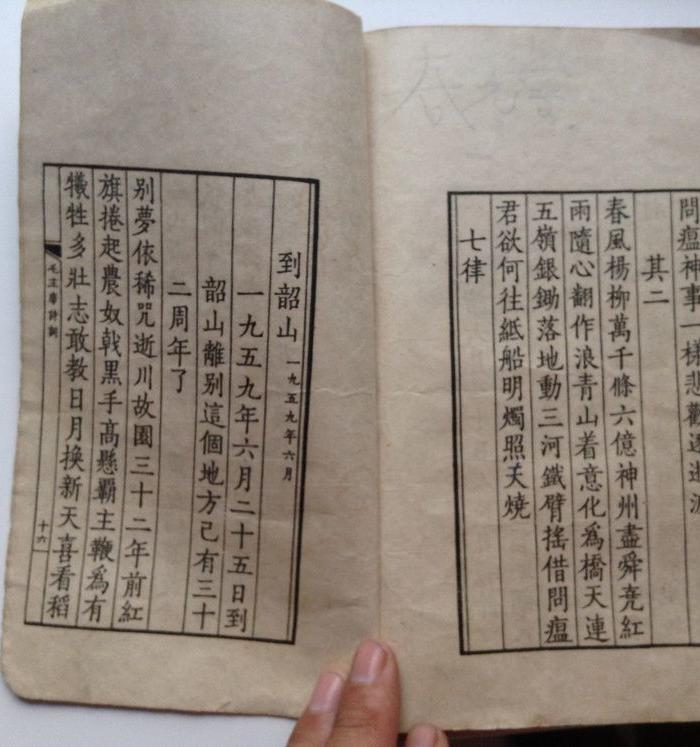 問瘟神事一樣悲歡逐逝波
其二
春風楊柳萬千條六億神州盡舜堯紅
雨隨心翻作浪青山着意化爲橋天連
五嶺銀鋤落地動三河鐵臂搖借問瘟
君欲何往紙船明燭照天燒
七律
到韶山 一九五九年六月
一九五九年六月二十五日到
韶山離別這個地方已有三十
二周年了
別夢依稀咒逝川故園三十二年前紅
旗捲起農奴戟黑手高懸霸主鞭爲有
犧牲多壯志敢教日月換新天喜看稻
毛主席詩詞
十六